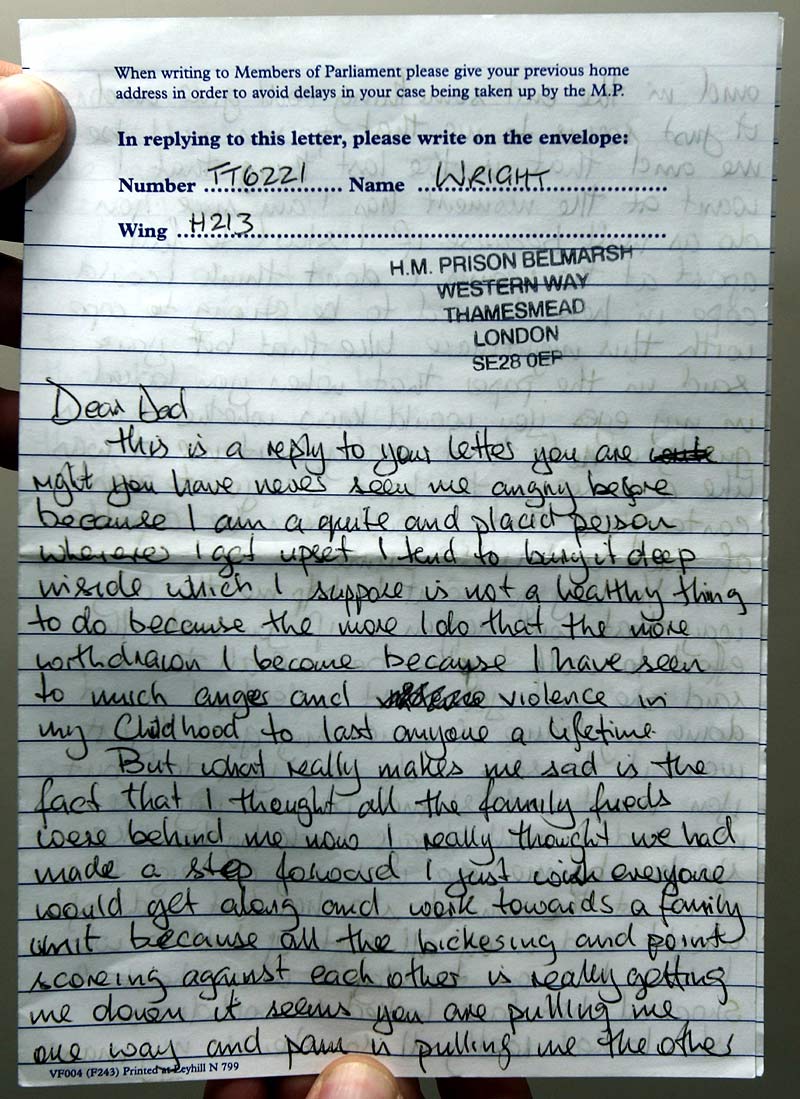 When writing to Members of Parliament please give your previous home
address in order to avoid delays in your case being taken up by the M.P.
In replying to this letter, please write on the envelope:
Number TT6221 Name WRIGHT
Wing H213
H.M. PRISON BELMARSH
WESTERN WAY
THAMESMEAD
LONDON
SE28 0EP
Dear Dad
this is a reply to your letter you are
right you have never seen me angry before
because I am a quite and placid person
whenever I get upset I tend to bury it deep
inside which I suppose is not a healthy thing
to do because the more I do that the more
withdrawn I become because I have seen
to much anger and violence in
my Childhood to last anyone a lifetime.
But what really makes me sad is the
fact that I thought all the family fueds
were behind me now I really thought we had
made a step forward I just wish everyone
would get along and work towards a family
unit because all the bickering and point
scoreing against each other is really getting
me down it seems you are pulling me
one way and pam is pulling me the other
VF004 (F243) Printed at Leyhill N 799